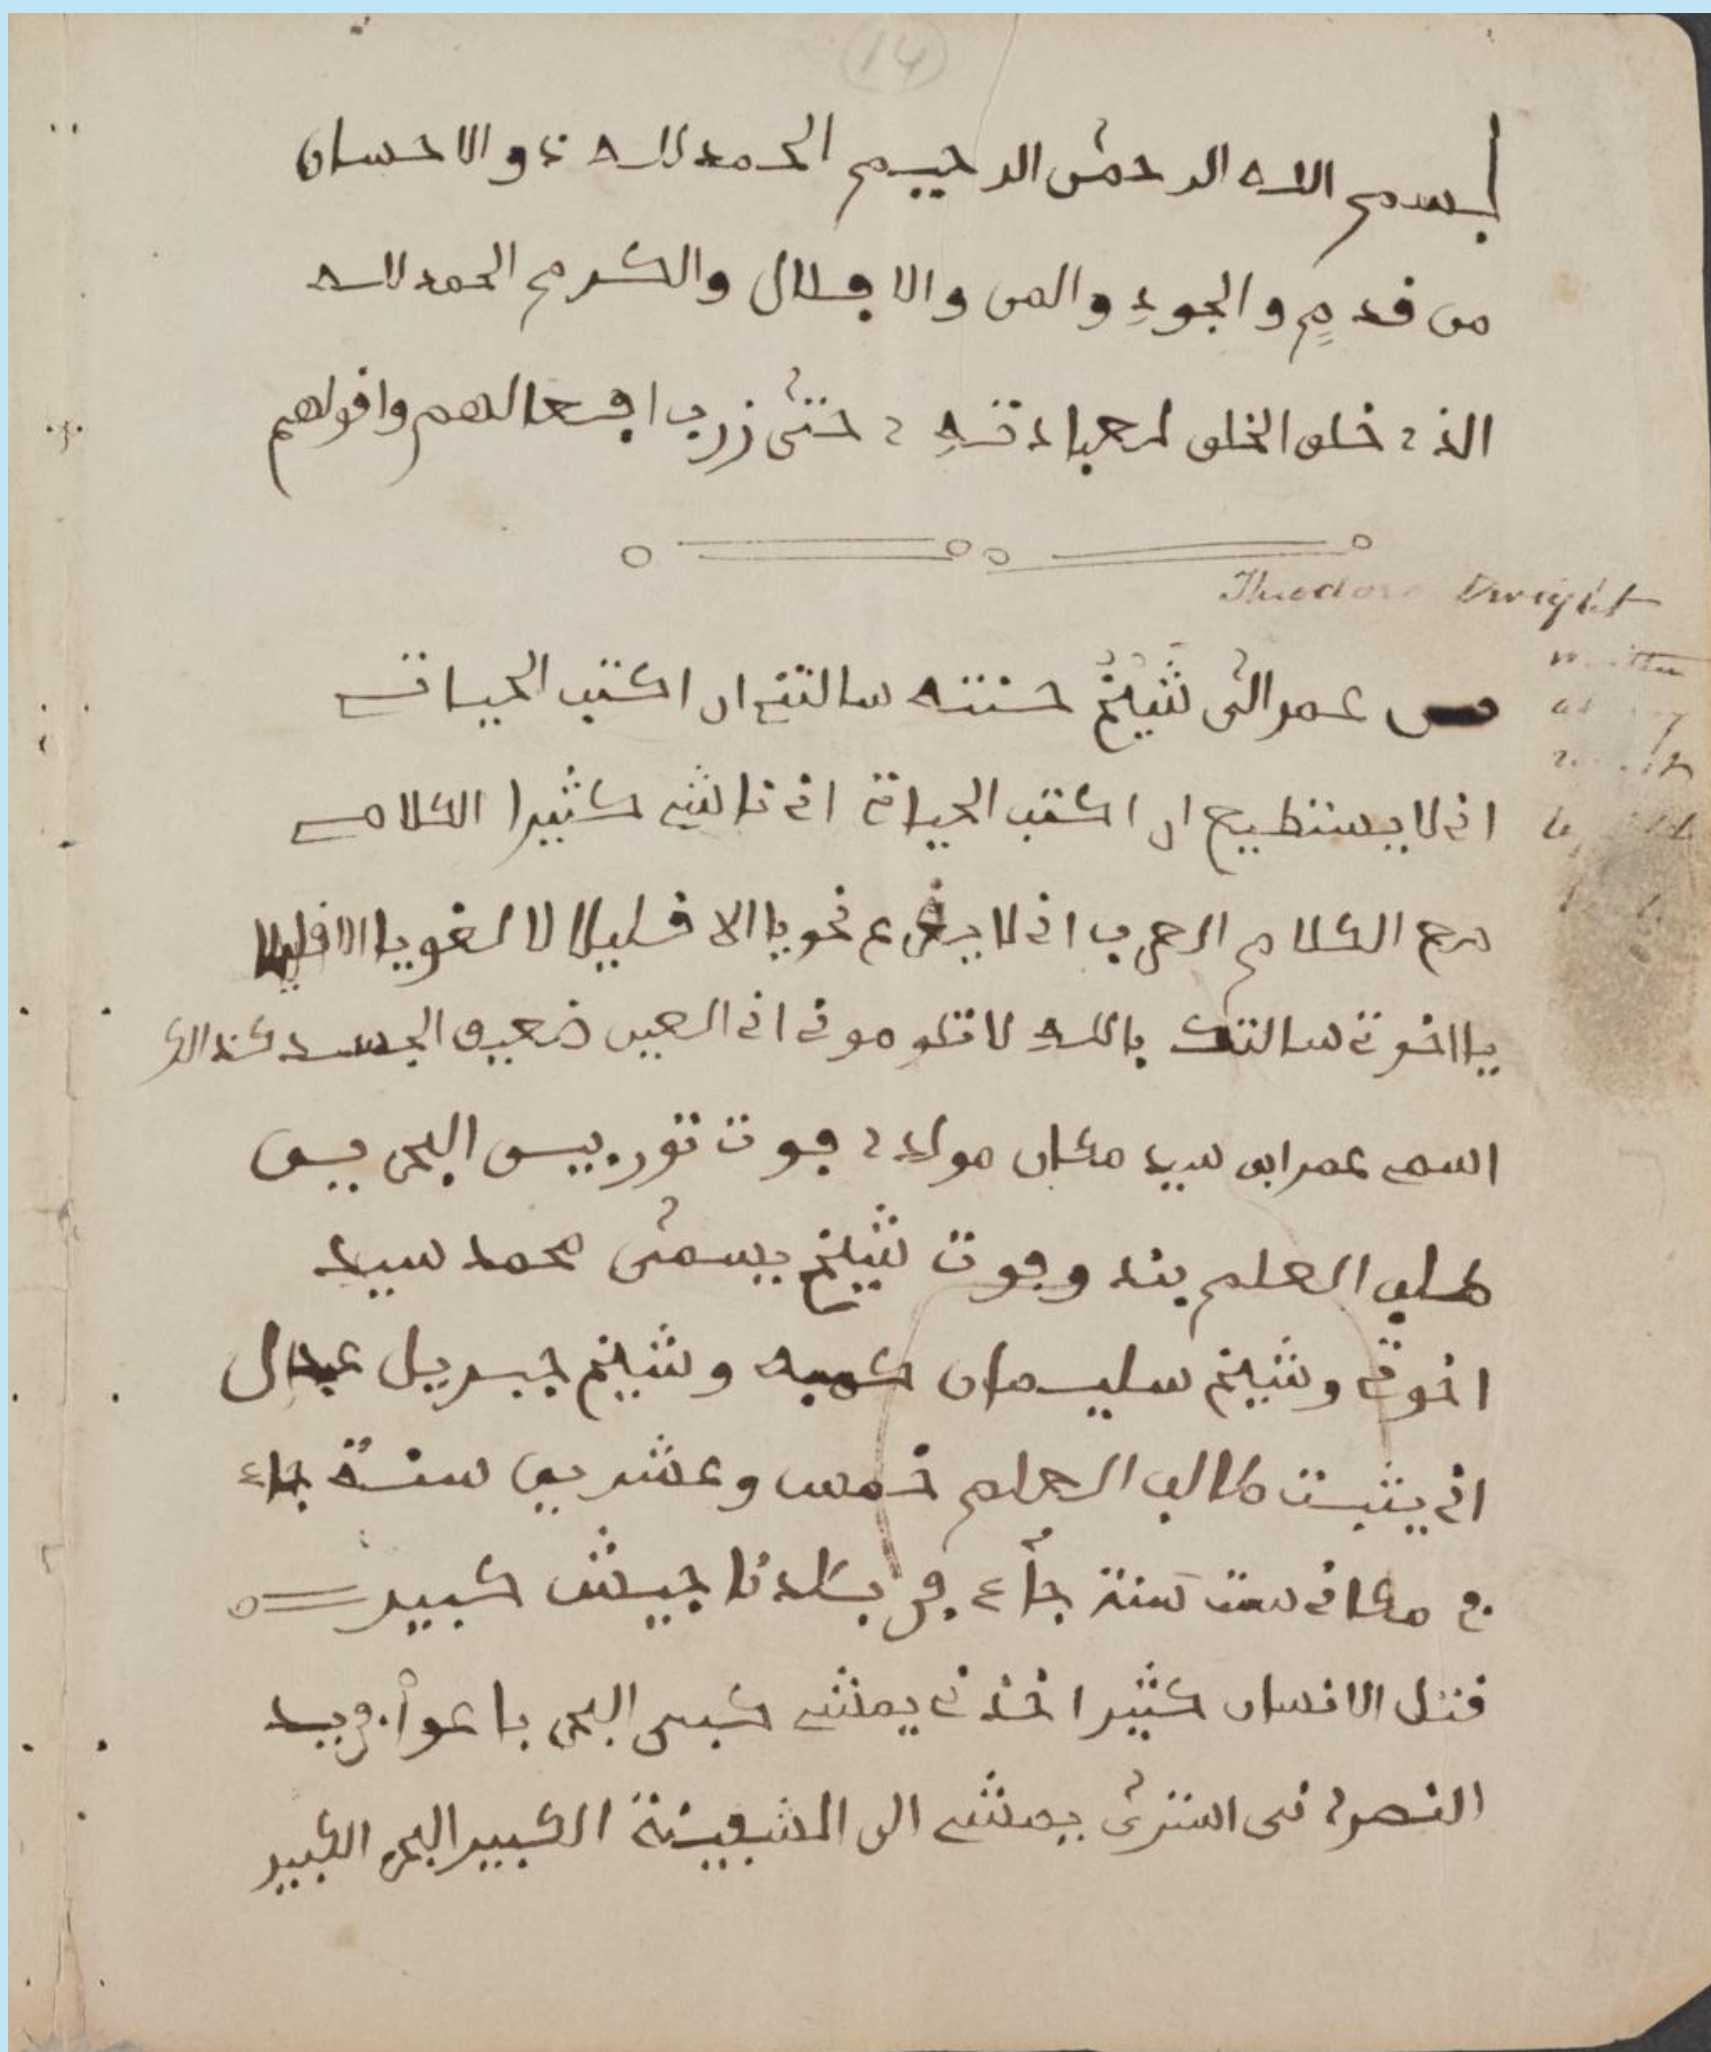 14
بسم الله الرحمن الرحيم الحمد لله ذو الاحسان
من قدمٍ والجودِ والمن والافلال والكرم الحمد لله
الذي خلق الخلق لعبادتهِ حتى زرب افعالهم واقولهم
Theodore Dwight
من عمر الى شَيْخُ حنته سالتنى ان اكتب الحياة
written
انى لا يستطيع ان اكتب الحياة انى ناشى كثيرا الكلام
مع الكلام العرب انى لا نحويا الا قليلا لا لغويا الا قليلا
يا اخوتى سالتك باللهِ لا تلوموني انى العين ضعيف الجسد كذالك
اسمى عمر ابن سيد مكان مولدي فوت تور بيس البحرين
طلب العلم بند وفوت شيخ يسمى محمد سيد
اخوتى وشيخ سليمان كمبه وشيخ جبريل عبدال
انى يثبت طالب العلم خمس وعشرين سنة جاء
في مكانى ست سنة جاء فى بلدنا جيش كبير
قتل الانسان كثيرا اخذنى يمشى كبير البحر باعوا في يد
النصراني اشترى يمشى الى السفينة الكبير البحر الكبير